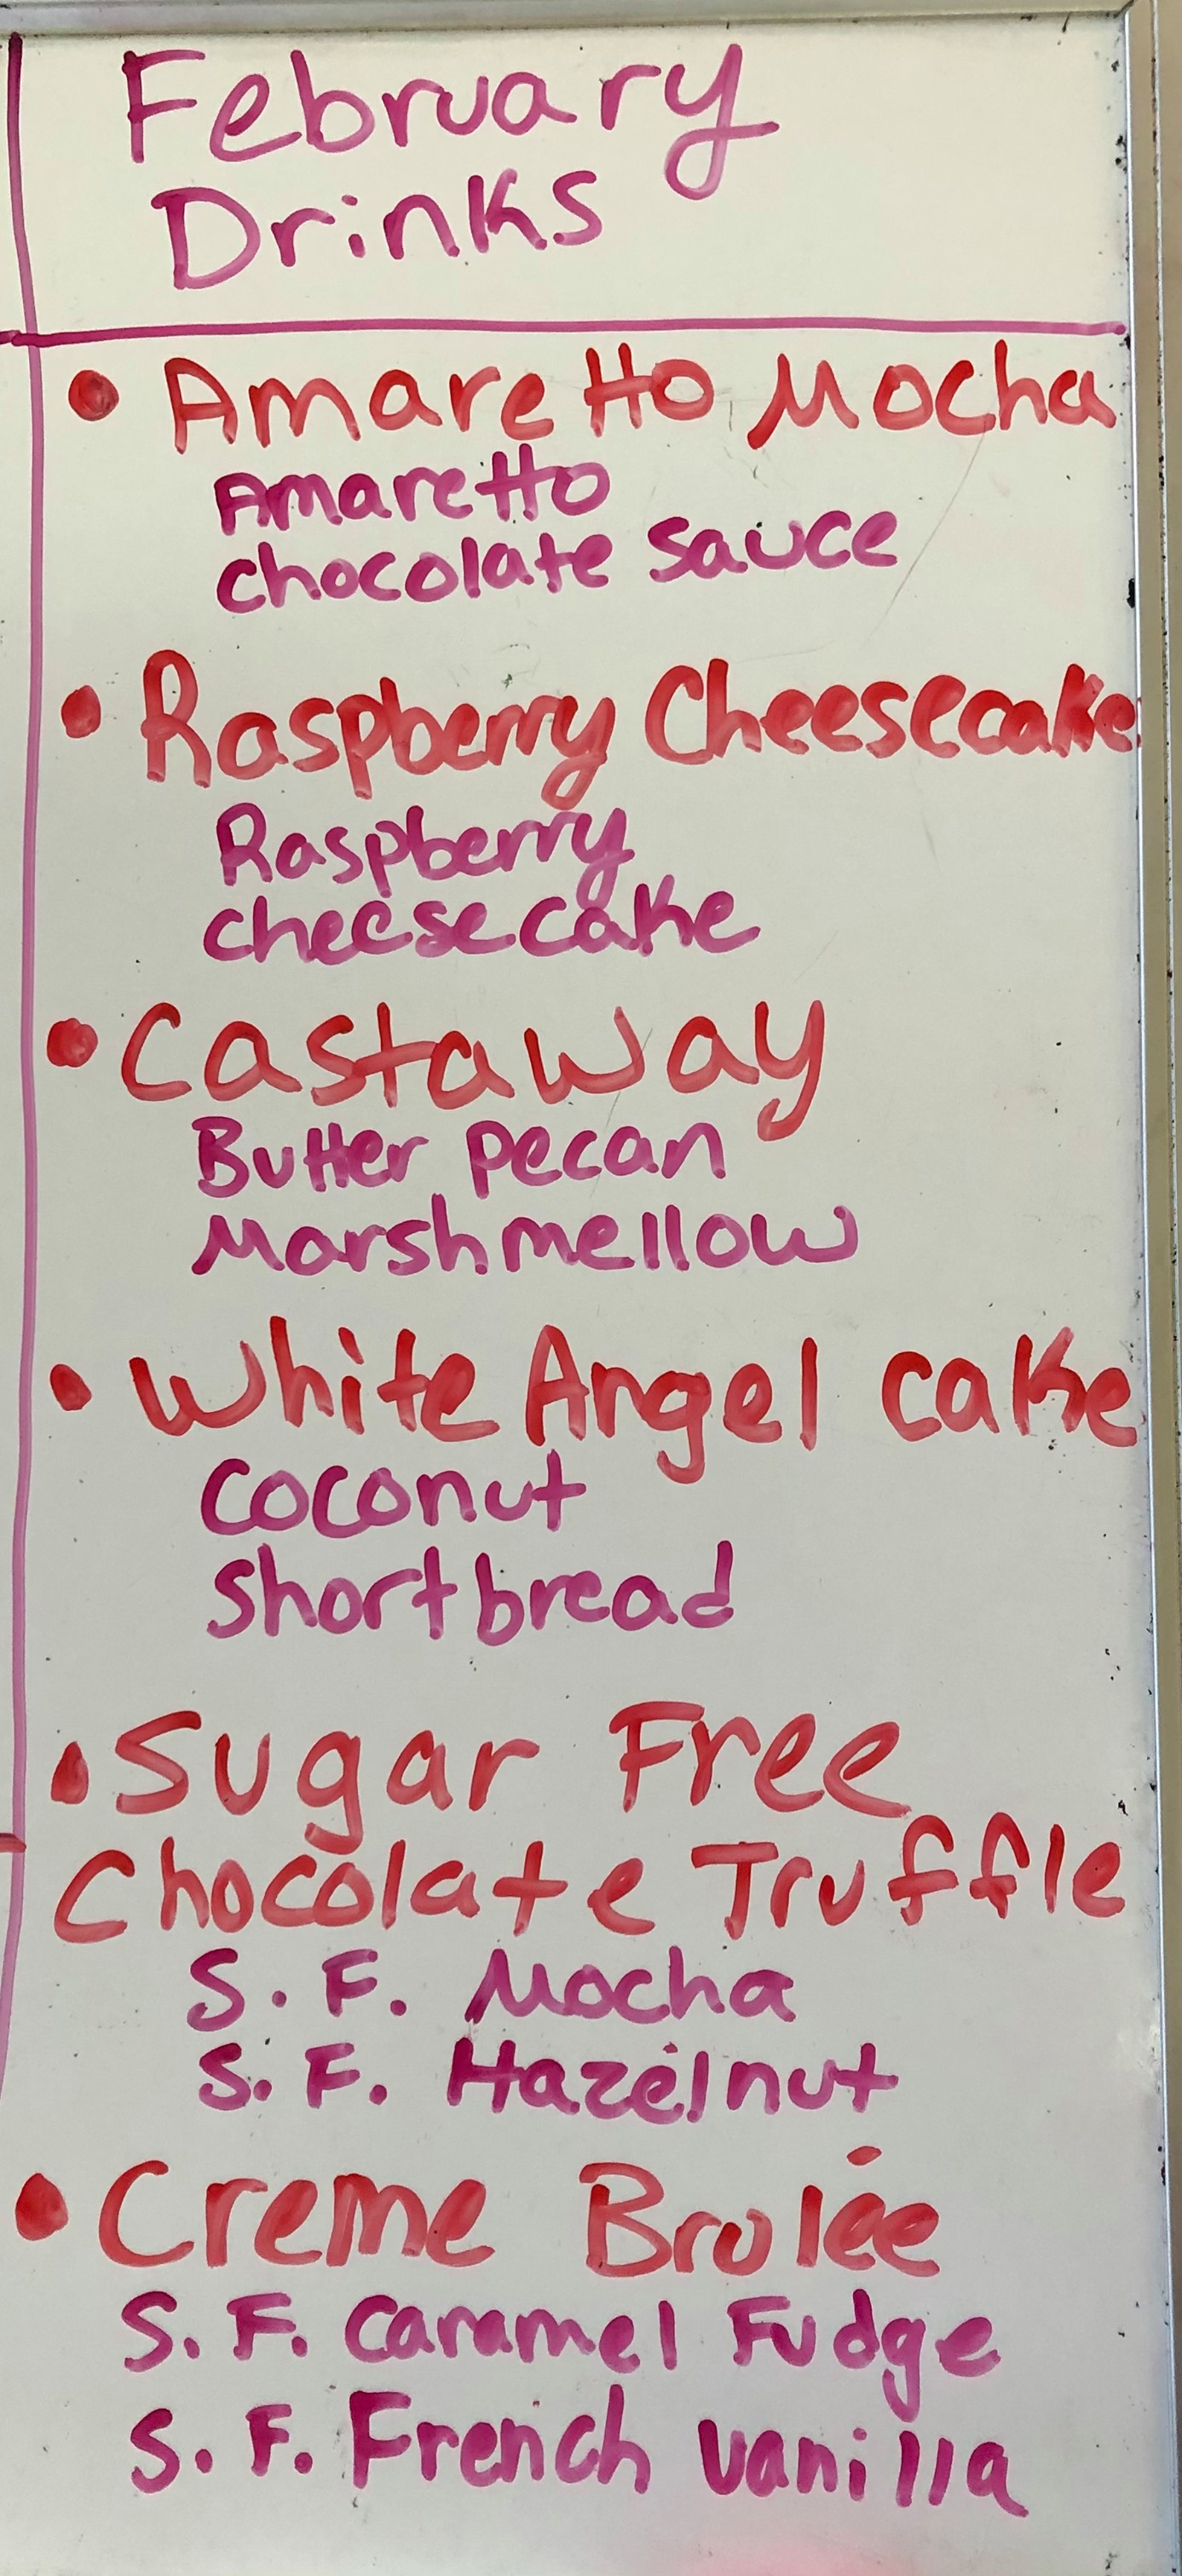 February
Drinks
• Amaretto Mocha
Amaretto
chocolate sauce
• Raspberry Cheesecake
Raspberry
cheesecake
• Castaway
Butter pecan
Marshmellow
• White Angel cake
coconut
shortbread
• Sugar Free
Chocolate Truffle
S. F. Mocha
S. F. Hazelnut
• Creme Brulée
S. F. Caramel Fudge
S. F. French vanilla